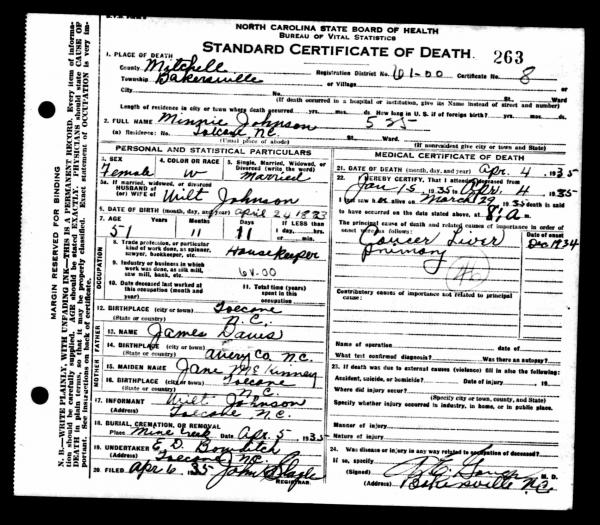 NORTH CAROLINA STATE BOARD OF HEALTH
BUREAU OF VITAL STATISTICS
STANDARD CERTIFICATE OF DEATH 263
1. PLACE OF DEATH
County Mitchell Registration District No. 61-00 Certificate No. 8
Township Bakersville or Village
City No. St. Ward
(If death occurred in a hospital or institution, give its Name instead of street and number)
Length of residence in city or town where death occurred yrs. mos. ds. How long in U. S. if of foreign birth? yrs. mos. ds.
2. FULL NAME Minnie Johnson 525
(a) Residence: No. Toecane N.C. St. Ward
(Usual place of abode) (If nonresident give city or town and State)
PERSONAL AND STATISTICAL PARTICULARS
3. SEX 4. COLOR OR RACE 5. Single, Married, Widowed, or Divorced (write the word)
Female W Married
5a. If married, widowed, or divorced
HUSBAND of
(or) WIFE of Wilt Johnson
6. DATE OF BIRTH (month, day, and year) April 24 1883
7. AGE Years Months Days If LESS than
1 day, hrs.
or min.
51 11 11
OCCUPATION
8. Trade, profession, or particular
kind of work done, as spinner,
sawyer, bookkeeper, etc. Housekeeper
9. Industry or business in which
work was done, as silk mill,
saw mill, bank, etc.
10. Date deceased last worked at
this occupation (month and
year)
11. Total time (years)
spent in this
occupation
12. BIRTHPLACE (city or town) Toecane
(State or country) N.C.
FATHER
13. NAME James Davis
14. BIRTHPLACE (city or town)
(State or country) Avery Co N.C.
MOTHER
15. MAIDEN NAME Jane McKinney
16. BIRTHPLACE (city or town) Toecane
(State or country) N.C.
17. INFORMANT Wilt Johnson
(Address) Toecane N.C.
18. BURIAL, CREMATION, OR REMOVAL
Place Mine Creek Date Apr. 5 1935
19. UNDERTAKER E. D.
(Address) Toecane N.C.
20. FILED Apr 6 35 John Slagle
REGISTRAR.
MEDICAL CERTIFICATE OF DEATH
21. DATE OF DEATH (month, day, and year) Apr. 4 1935
22. I HEREBY CERTIFY, That I attended deceased from
Jan 15 1935 to Apr. 4 1935
I last saw h alive on March 29 1935 death is said
to have occurred on the date stated above, at 8:/a m.
The principal cause of death and related causes of importance in order of
onset were as follows: Date of onset
Cancer Liver Dec 1934
primary
46
Contributory causes of importance not related to principal
cause:
Name of operation Date of
What test confirmed diagnosis? Was there an autopsy?
23. If death was due to external causes (violence) fill in also the following:
Accident, suicide, or homicide? Date of injury 19
Where did injury occur?
(Specify city or town, county, and State)
Specify whether injury occurred in industry, in home, or in public place.
Manner of injury
Nature of injury
24. Was disease or injury in any way related to occupation of deceased?
If so, specify
(Signed) M. D.
(Address) Bakersville N.C.
MARGIN RESERVED FOR BINDING
N. B.—WRITE PLAINLY, WITH UNFADING INK—THIS IS A PERMANENT RECORD. Every item of information
should be carefully supplied. AGE should be stated EXACTLY. PHYSICIANS should state CAUSE OF
DEATH in plain terms, so that it may be properly classified. Exact statement of OCCUPATION is very important.
See instructions on back of certificate.